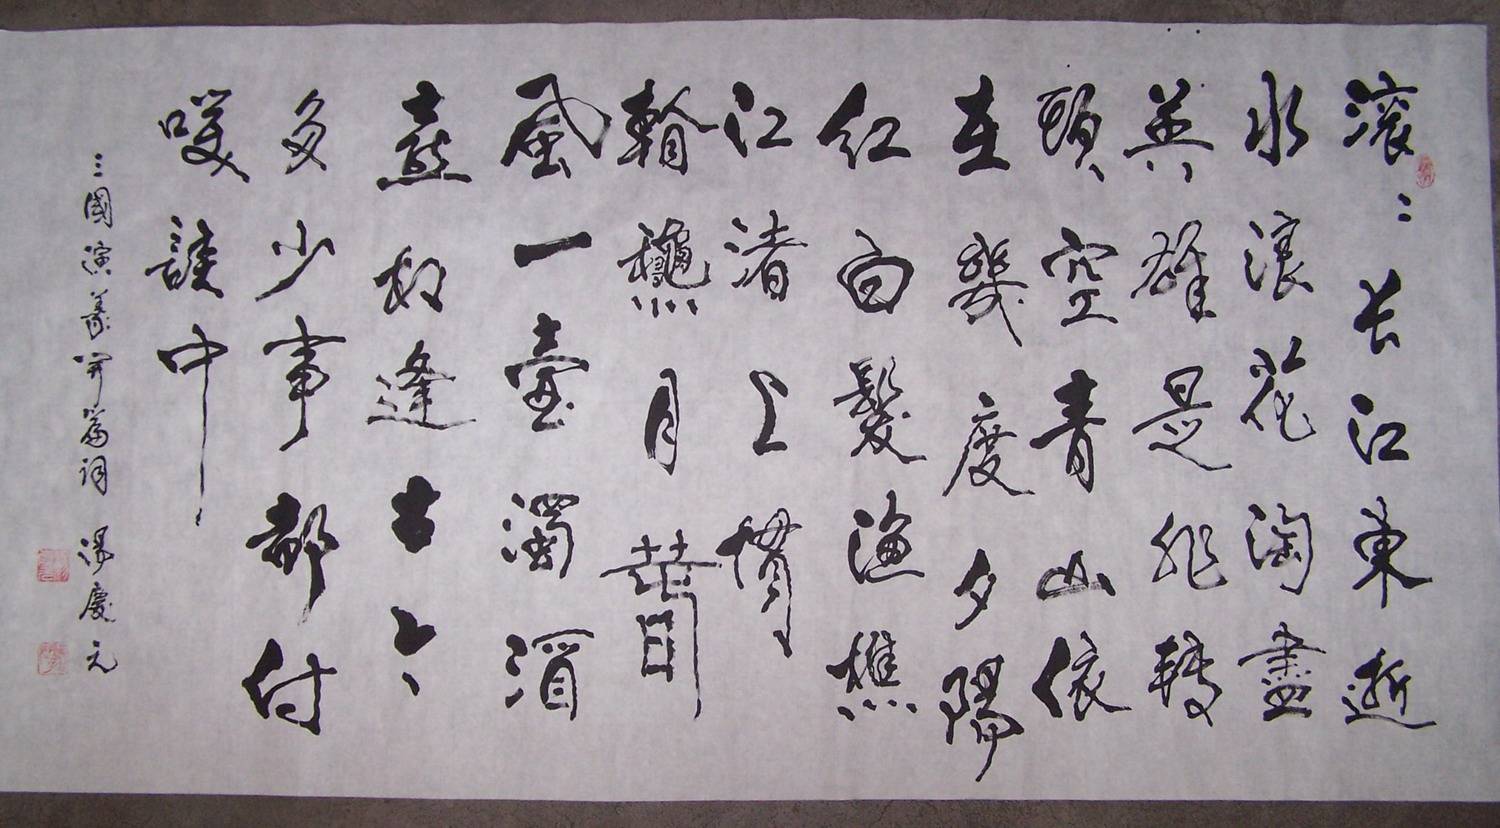 滚〻长江東逝
水浪花淘盡
英雄是非轉
頭空青山依
在幾度夕陽
紅白髮漁樵
江渚上慣
看龝月春
風一壺濁酒
喜相逢古今
多少事都付
咲談中
三國演義開篇詞 湯慶元